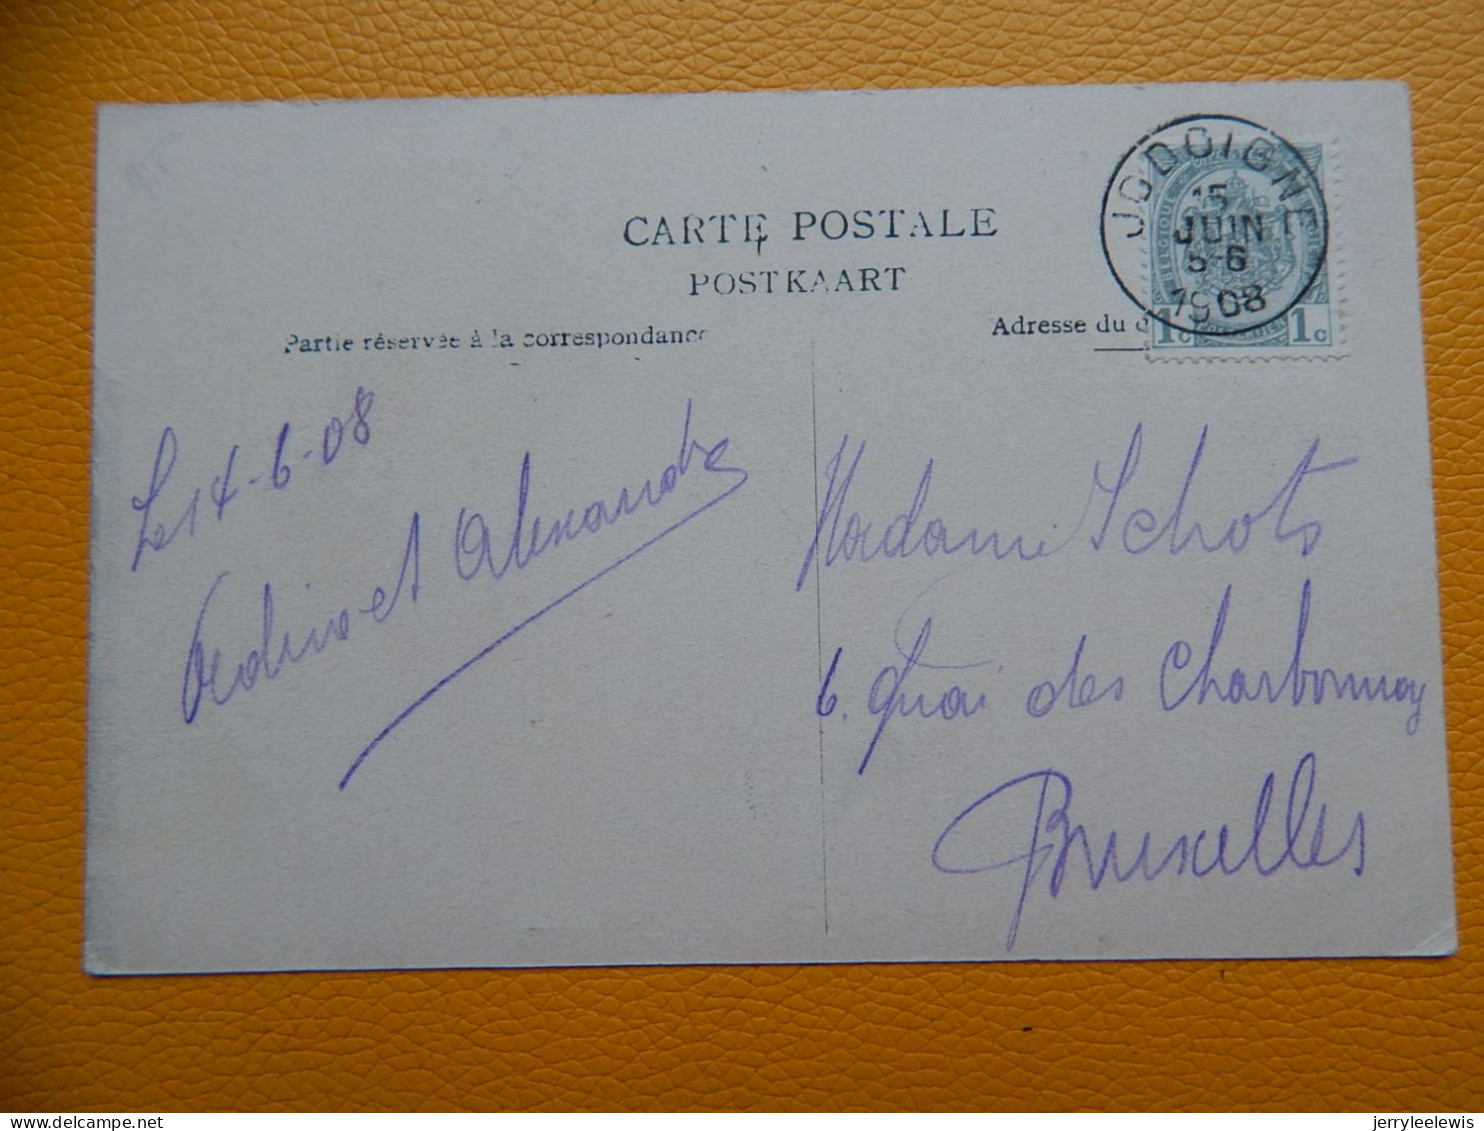 CARTE POSTALE
POSTKAART
Partie réservée à la correspondance
Adresse du d
JODOIGNE
15
JUIN
5-6
1908
BELGIQUE
1c 1c
Le 14-6-08
et Alexandre
Madame Schots
6. Quai des Charbonnag
Bruxelles
jerryleelewis